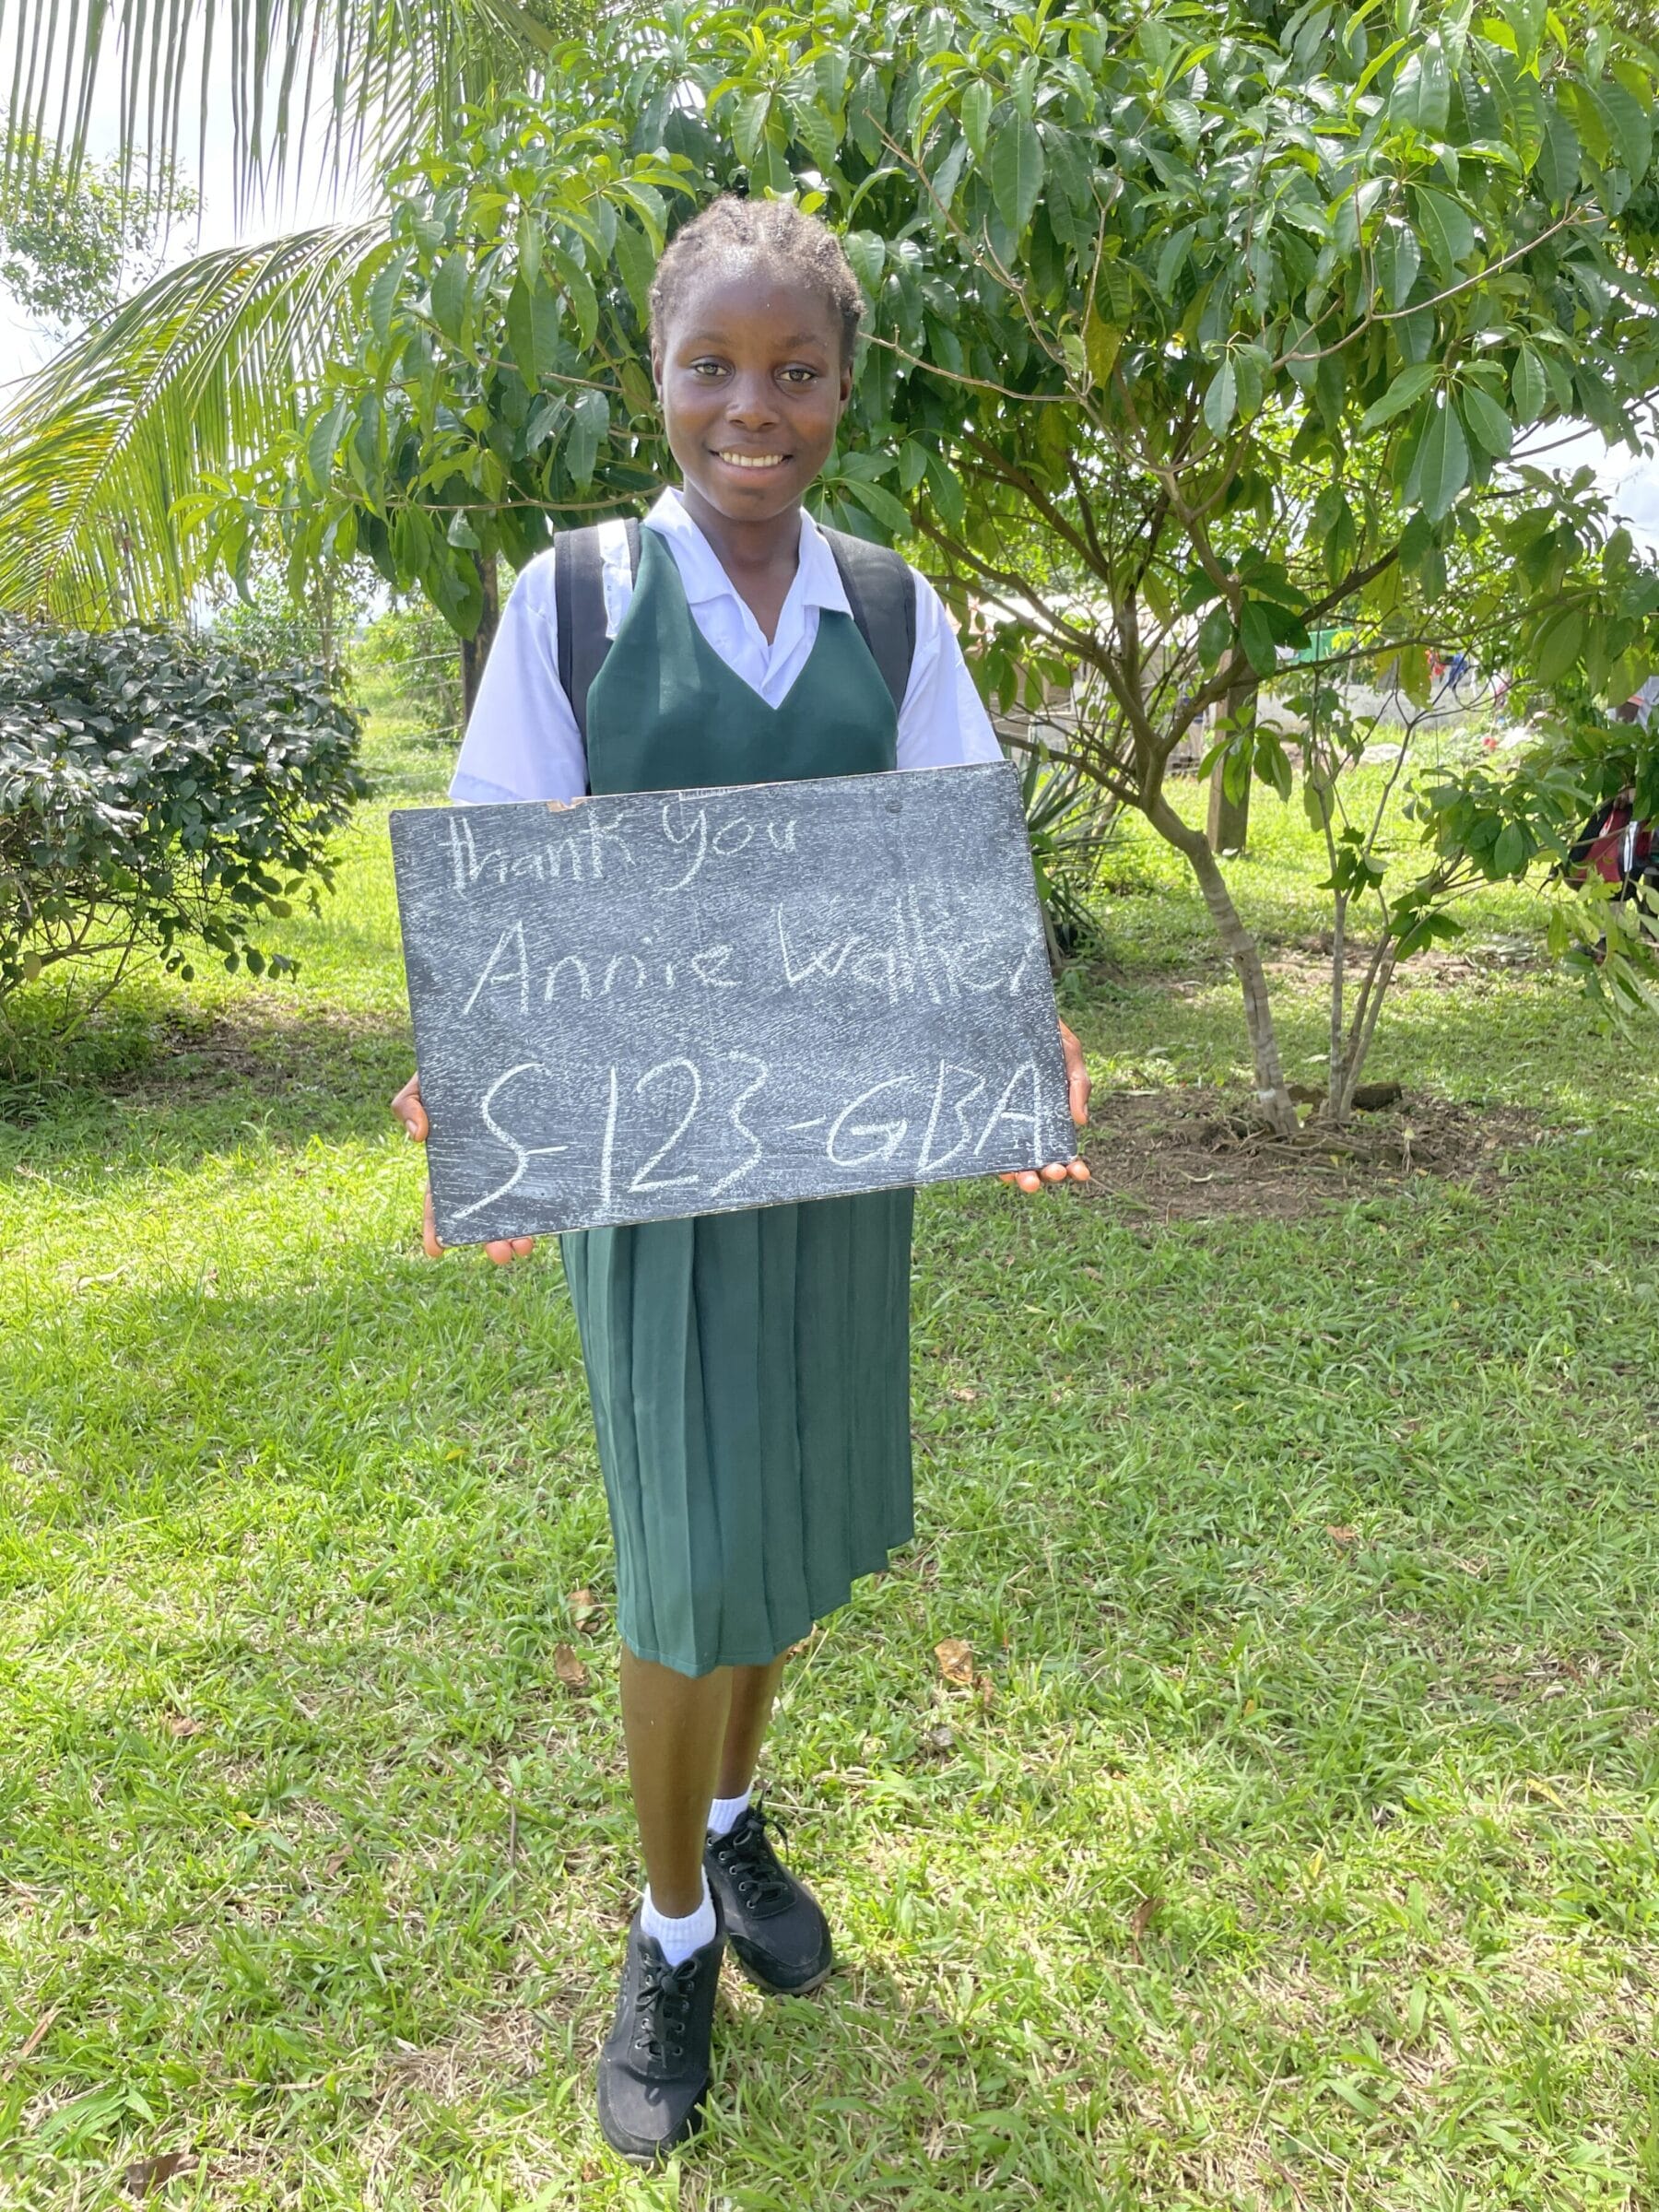 thank you
Annie Walker
S-123-GBA